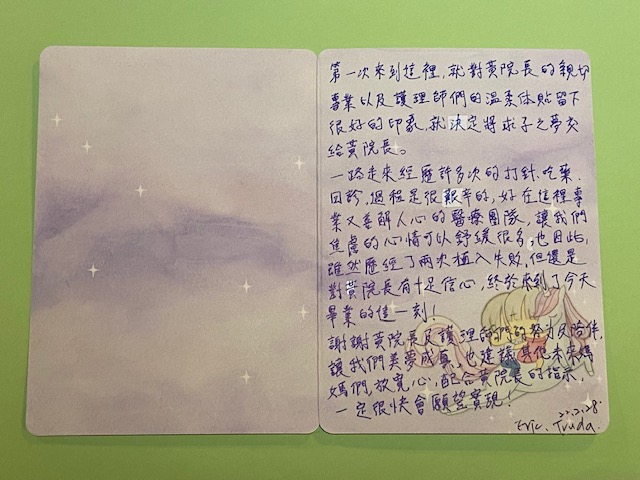 第一次來到這裡,就對黃院長的親切
專業以及護理師們的溫柔体貼留下
很好的印象,就決定將求子之夢交
給黃院長。
一路走來經歷許多次的打針、吃藥、
回診,過程是很艱辛的,好在這裡專
業又善解人心的醫療團隊,讓我們
焦慮的心情可以舒緩很多,也因此,
雖然歷經了兩次植入失敗,但還是
對黃院長有十足信心,終於來到了今天
畢業的這一刻!
謝謝黃院長及護理師們的努力及陪伴,
讓我們美夢成真,也建議其他未來媽
媽們,放寬心,配合黃院長的指示,
一定很快會願望實現!
22.2.28.
Eric. Truda.